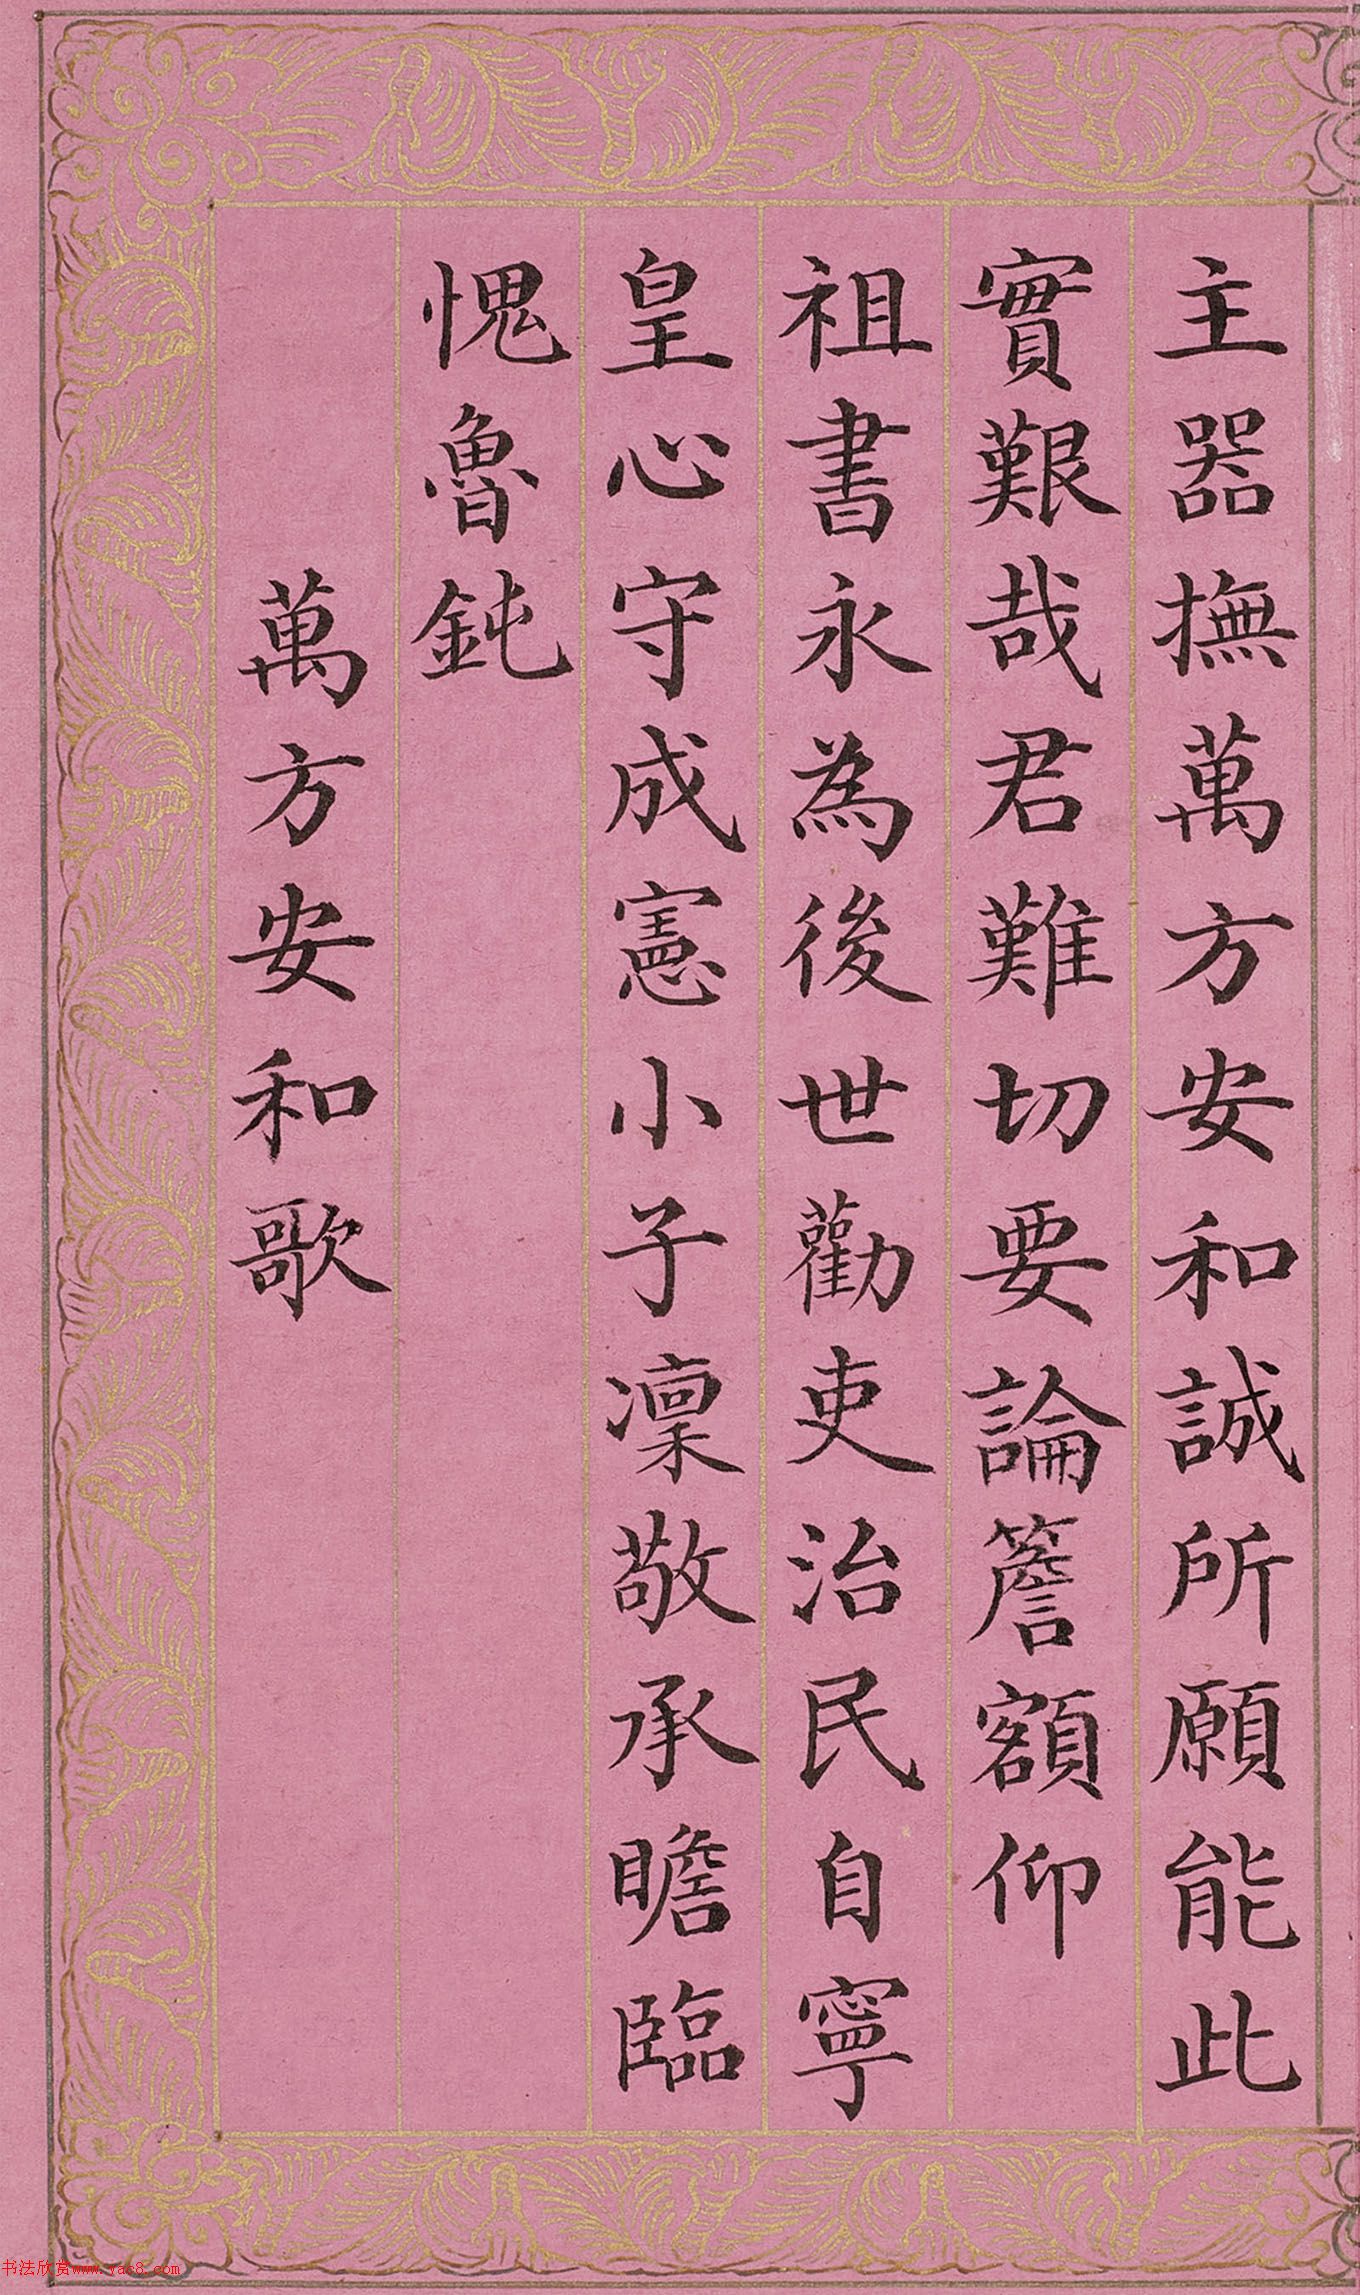 主器撫萬方安和誠所願能此
實艱哉君難切要論簷額仰
祖書永為後世勸吏治民自寧
皇心守成憲小子凜敬承瞻臨
愧魯鈍
萬方安和歌
书法欣赏www.yac8.com